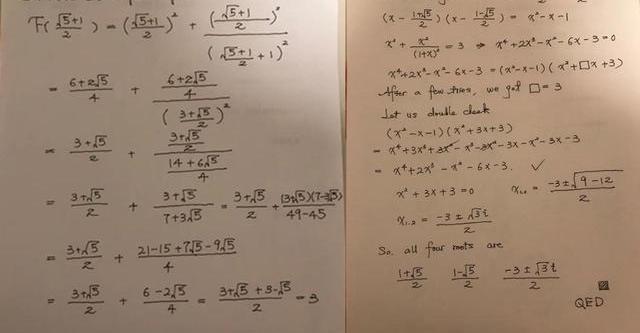 F(\frac{√5+1}{2}) = (\frac{√5+1}{2})² + \frac{(\frac{√5+1}{2})²}{(\frac{√5+1}{2}+1)²}
= \frac{6+2√5}{4} + \frac{\frac{6+2√5}{4}}{(\frac{3+√5}{2})²}
= \frac{3+√5}{2} + \frac{\frac{3+√5}{2}}{\frac{14+6√5}{4}}
= \frac{3+√5}{2} + \frac{3+√5}{7+3√5} = \frac{3+√5}{2} + \frac{(3+√5)(7-3√5)}{49-45}
= \frac{3+√5}{2} + \frac{21-15+7√5-9√5}{4}
= \frac{3+√5}{2} + \frac{6-2√5}{4} = \frac{3+√5+3-√5}{2} = 3
(x - \frac{1+√5}{2})(x - \frac{1-√5}{2}) = x²-x-1
x² + \frac{x²}{(1+x)²} = 3 ⇒ x⁴+2x³-x²-6x-3=0
x⁴+2x³-x²-6x-3 = (x²-x-1)(x²+□x+3)
After a few tries, we get □=3
Let us double check
(x²-x-1)(x²+3x+3)
= x⁴+3x³+3x²-x³-3x²-3x-x²-3x-3
= x⁴+2x³-x²-6x-3. ✓
x²+3x+3=0 x₁,₂ = \frac{-3±√9-12}{2}
x₁,₂ = \frac{-3±√3i}{2}
So, all four roots are
\frac{1+√5}{2} \frac{1-√5}{2} \frac{-3±√3i}{2}
QED